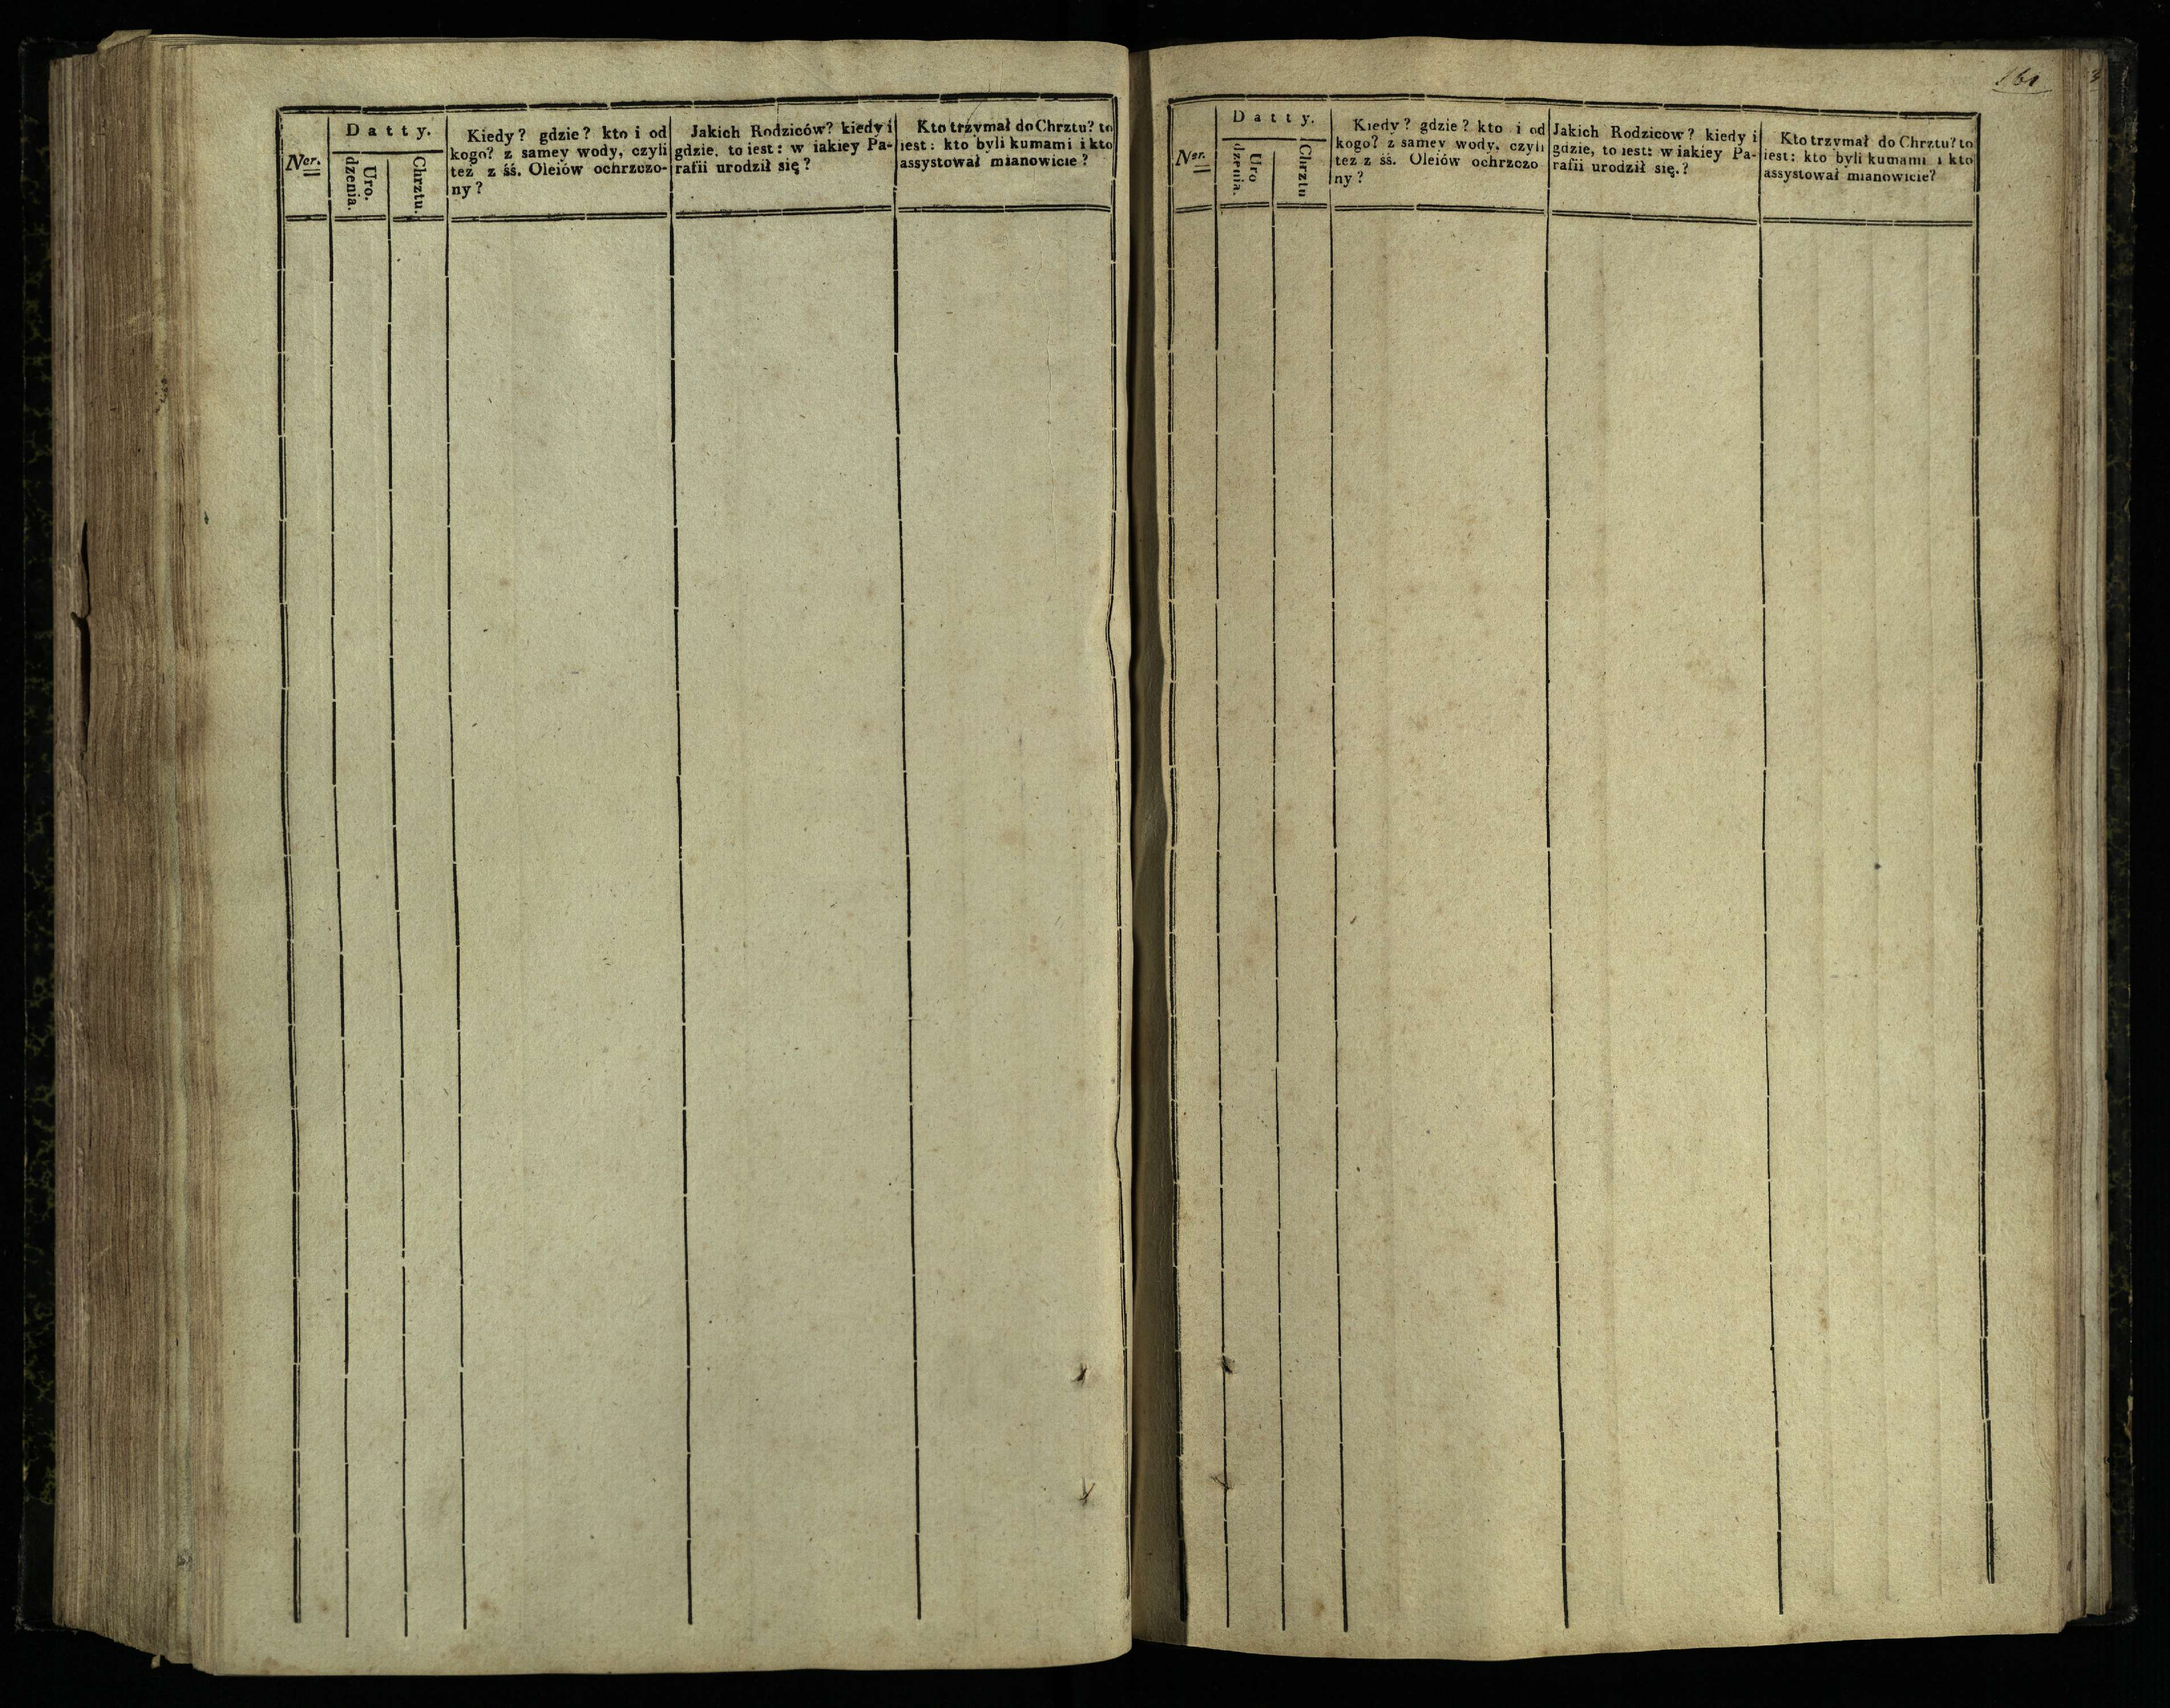 Ner.
Datty.
Uro.
dzenia.
Chrztu.
Kiedy? gdzie? kto i od
kogo? z samey wody, czyli
tez z śś. Oleiów ochrzczo-
ny?
Jakich Rodziców? kiedy i
gdzie, to iest: w iakiey Pa-
rafii urodził się?
Kto trzymał do Chrztu? to
iest: kto byli kumami i kto
assystował mianowicie?
161
Ner.
Datty.
Uro
dzenia.
Chrztu
Kiedy? gdzie? kto i od
kogo? z samey wody, czyli
tez z śś. Oleiów ochrzczo
ny?
Jakich Rodzicow? kiedy i
gdzie, to iest: w iakiey Pa-
rafii urodził się.?
Kto trzymał do Chrztu? to
iest: kto byli kumami i kto
assystował mianowicie?